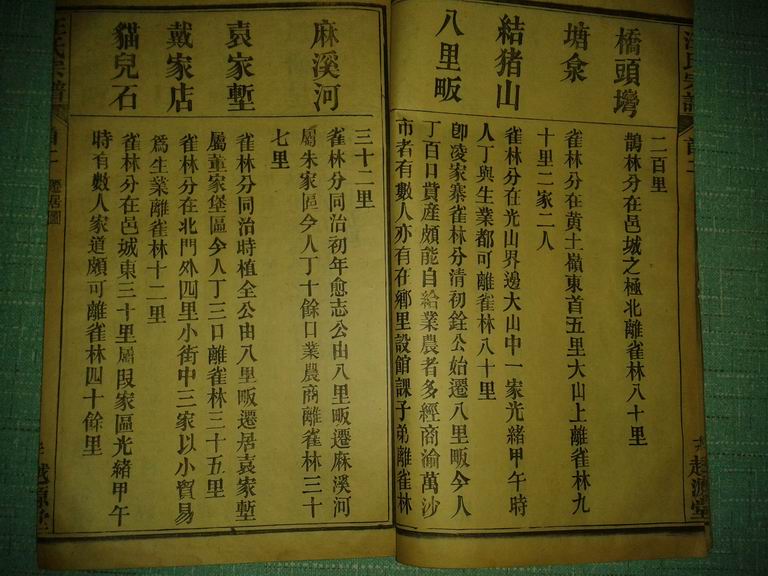 二百里
橋頭壪
鵲林分在邑城之極北離雀林八十里
塘泉
雀林分在黄土嶺東首五里大山上離雀林九
十里二家二人
結猪山
雀林分在光山界邊大山中一家光緒甲午時
人丁與生業都可離雀林八十里
八里畈
卽凌家寨雀林分清初銓公始遷八里畈今人
丁百口貲産頗能自給業農者多經商渝萬沙
市者有數人亦有在鄉里設館課子弟離雀林
三十二里
麻溪河
雀林分同治初年愈志公由八里畈遷麻溪河
屬朱家區今人丁十餘口業農商離雀林三十
七里
袁家塹
雀林分同治時植全公由八里畈遷居袁家塹
屬董家堡區今人丁三口離雀林三十五里
戴家店
雀林分在北門外四里小街中三家以小貿易
爲生業離雀林十二里
貓兒石
雀林分在邑城東三十里屬段家區光緒甲午
時有數人家道頗可離雀林四十餘里
氏宗譜
首二
遷居圖